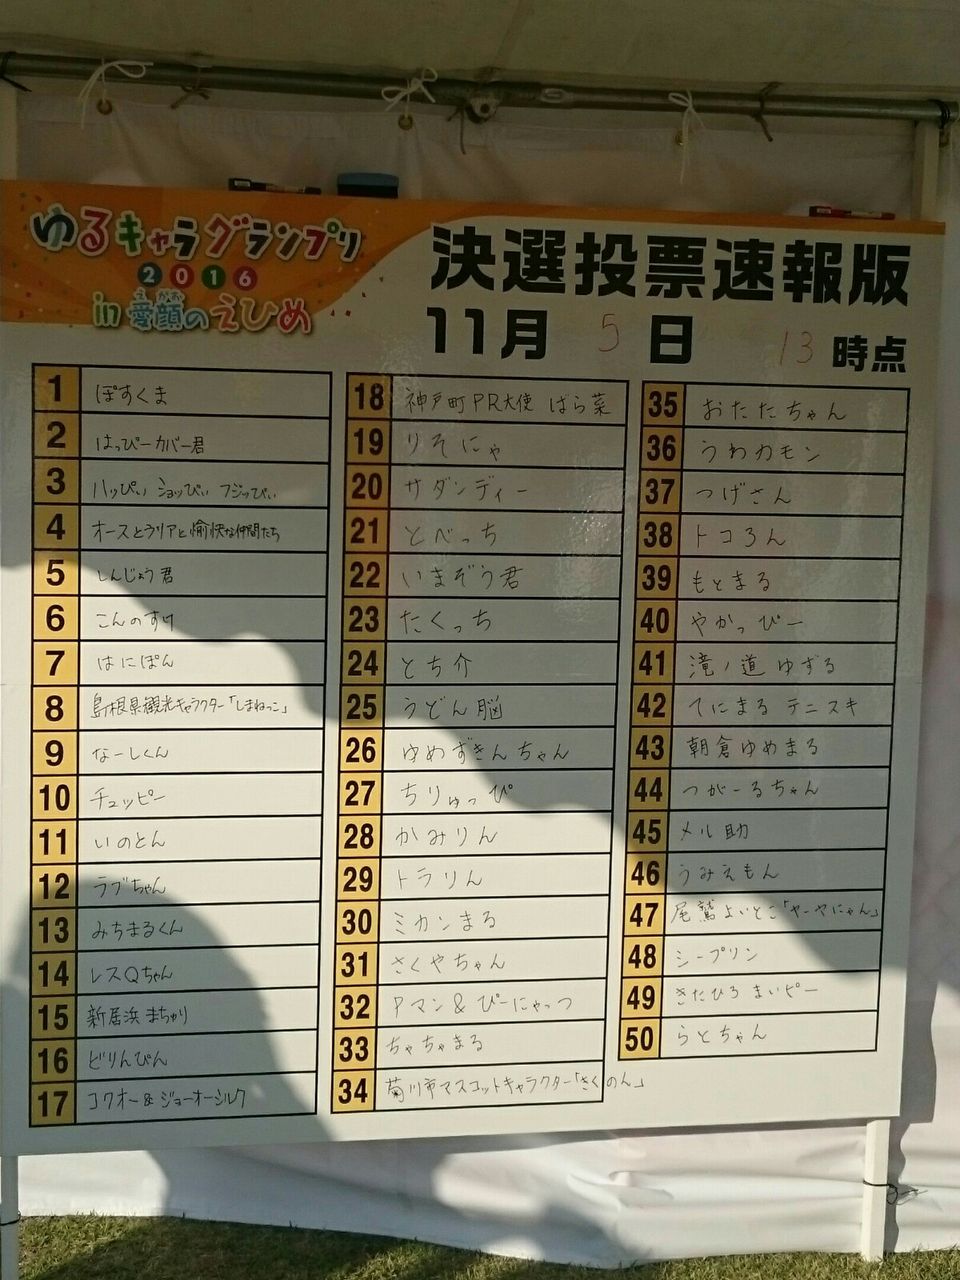 ゆるキャラグランプリ
2016
in 愛顔のえひめ
えがお
決選投票速報版
11月 5 日 13 時点
1 ぽすくま
2 はっぴーカバー君
3 ハッぴぃ ショッぴぃ フジッぴぃ
4 オースとラリアと愉快な仲間たち
5 しんじょう君
6 こんのすけ
7 はにぽん
8 島根県観光キャラクター「しまねっこ」
9 なーしくん
10 チュッピー
11 いのとん
12 ラブちゃん
13 みちまるくん
14 レスQちゃん
15 新居浜まちゅり
16 ビリんぴん
17 コクオー&ジョーオーシルク
18 神戸町PR大使 ばら菜
19 りそにゃ
20 サダンディー
21 とべっち
22 いまぞう君
23 たくっち
24 とち介
25 うどん脳
26 ゆめずきんちゃん
27 ちりゅっぴ
28 かみりん
29 トラりん
30 ミカンまる
31 さくやちゃん
32 Pマン&ぴーにゃっつ
33 ちゃちゃまる
34 菊川市マスコットキャラクター「きくのん」
35 おたたちゃん
36 うわカモン
37 つげさん
38 トコろん
39 もとまる
40 やかっぴー
41 滝ノ道ゆずる
42 てにまる テニスキ
43 朝倉ゆめまる
44 つがーるちゃん
45 メル助
46 うみえもん
47 尾鷲よいとこ「ヤーヤにゃん」
48 シープリン
49 きたひろ まいピー
50 らとちゃん